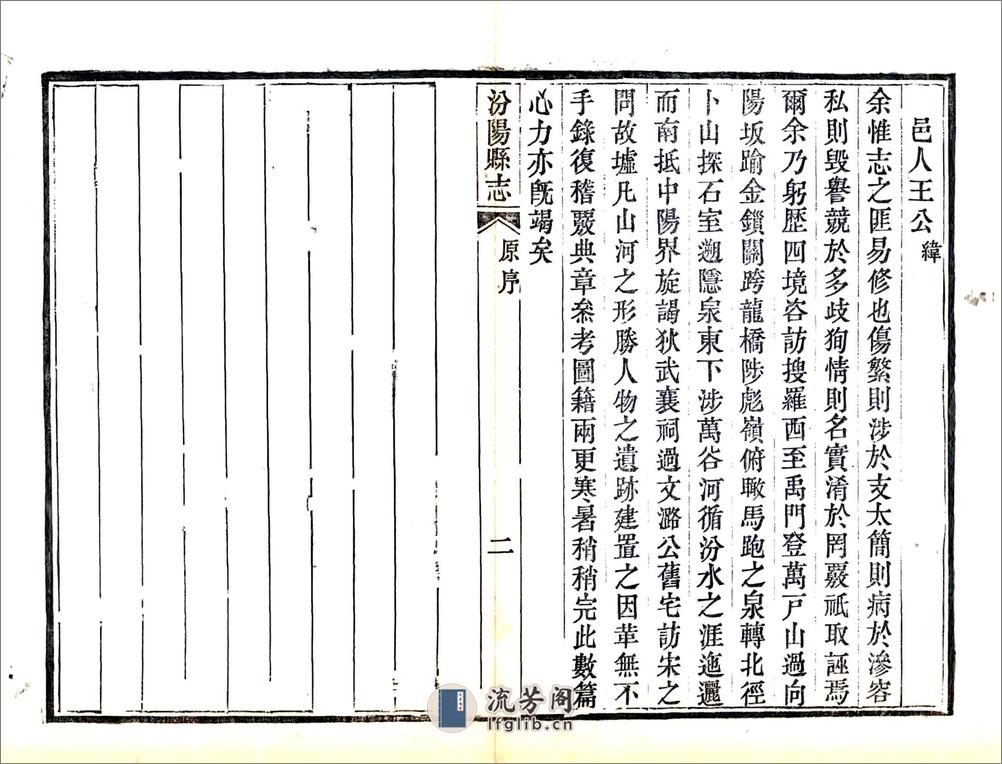 邑人王公緯
余惟志之匪易修也傷繁則涉於支太簡則病於滲容
私則毀譽競於多歧狥情則名實淆於罔覈祇取誣焉
爾余乃躬歴四境咨訪搜羅西至禹門登萬戸山過向
陽坂踰金鎖關跨龍橋陟彪嶺俯瞰馬跑之泉轉北徑
卜山探石室遡隱泉東下涉萬谷河循汾水之涯迤邐
而南抵中陽界旋謁狄武襄祠過文潞公舊宅訪宋之
問故墟凡山河之形勝人物之遺跡建置之因革無不
手錄復稽覈典章叅考圖籍兩更寒暑稍稍完此數篇
心力亦旣竭矣
汾陽縣志 原序 二
流芳阁
lfglib.cn